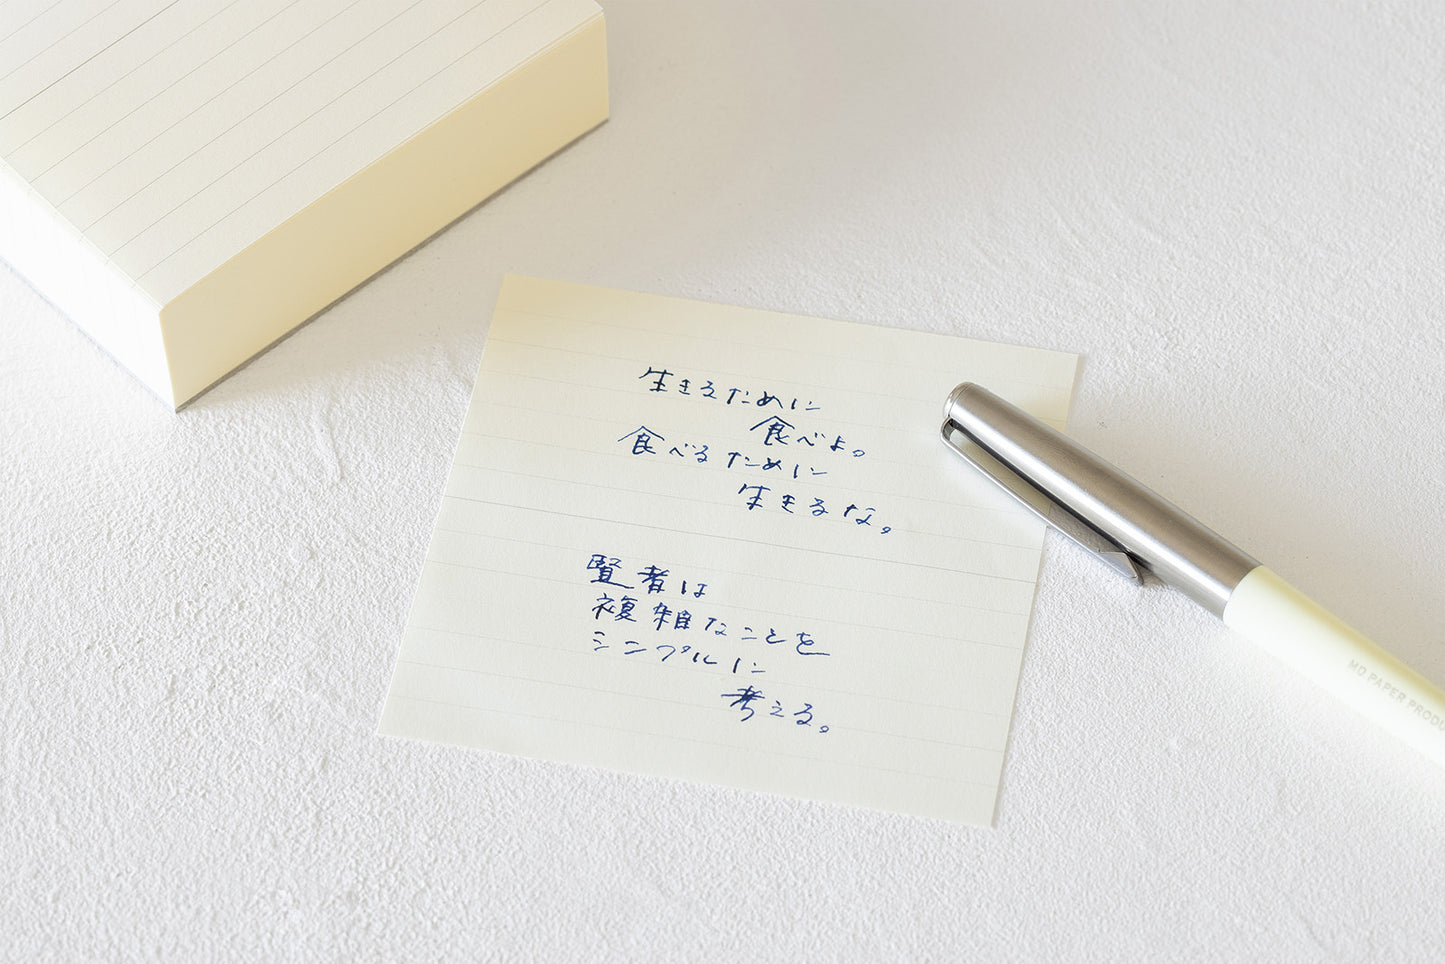 生きるために
食べよ。
食べるために
生きるな。
賢者は
複雑なことを
シンプルに
考える。
MD PAPER PRODU